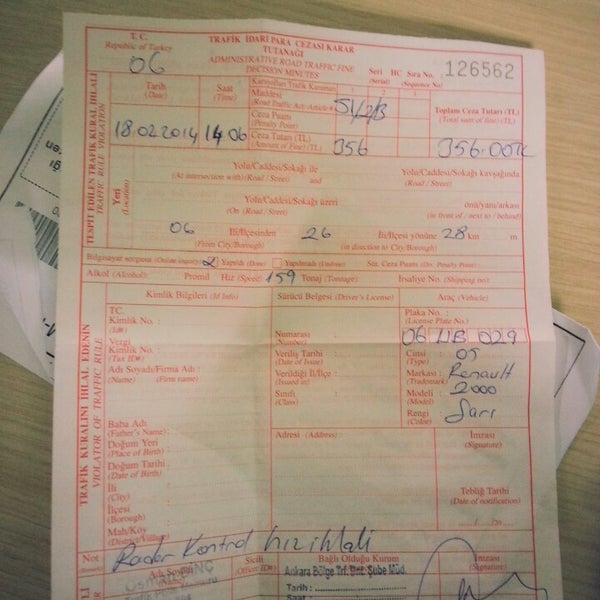 T. C.
Republic of Turkey
06
TRAFİK İDARİ PARA CEZASI KARAR
TUTANAĞI
ADMINISTRATIVE ROAD TRAFFIC FINE
DECISION MINUTES
Seri HC Sıra No. 126562
(Serial) (Sequence No)
Tarih
(Date)
Saat
(Time)
18.02.2014 14 06
Karayolları Trafik Kanunun 1 2 3
Maddesi
(Road Traffic Act: Article #) 51/2/B
Ceza Puanı
(Penalty Point)
Ceza Tutarı (TL)
(Amount of Fine) (TL) 356
Toplam Ceza Tutarı (TL)
(Total sum of fine) (TL)
356.00TL
TESPİT EDİLEN TRAFİK KURAL İHLALİ
TRAFFIC RULE VIOLATION
Yeri
(Location)
Yolu/Caddesi/Sokağı ile Yolu/Caddesi/Sokağı kavşağında
(At intersection with) (Road / Street) and (Road / Street)
Yolu/Caddesi/Sokağı üzeri önü/yanı/arkası
(On) (Road / Street) (in front of / next to / behind)
06 İli/İlçesinden 26 İli/İlçesi yönüne 28 km m
(From City/Borough) (in direction to City/Borough)
Bilgisayar sorgusu (Online inquiry) Yapıldı (Done) Yapılmadı (Undone) Sür. Ceza Puanı (Drv. Penalty Point)
Alkol (Alcohol): Promil Hız (Speed) 159 Tonaj (Tonnage): İrsaliye No. (Shipping no):
TRAFİK KURALINI İHLAL EDENİN
VIOLATOR OF TRAFFIC RULE
Kimlik Bilgileri (Id Info)
TC.
Kimlik No. :
(Id#)
Vergi
Kimlik No. :
(Tax ID#)
Adı Soyadı/Firma Adı :
(Name) (Firm name)
Baba Adı
(Father's Name) :
Doğum Yeri
(Place of Birth) :
Doğum Tarihi
(Date of Birth) :
İli
(City) :
İlçesi
(Borough) :
Mah/Köy
(District/Village) :
Sürücü Belgesi (Driver's License)
Numarası
(Number) :
Veriliş Tarihi
(Date of Issue) :
Verildiği İl/İlçe :
(Issued in)
Sınıfı
(Class) :
Araç (Vehicle)
Plaka No. :
(License Plate No.)
06 029
Cinsi
(Type) :
Markası : Renault
(Trademark)
Modeli : 2000
(Model)
Rengi : Sarı
(Color)
Adresi (Address) :
İmzası
(Signature)
Tebliğ Tarihi
(Date of notification)
Not
(Notes) Radar Kontrol hız ihlali
Adı Soyadı
Sicili
(Officer ID#)
Bağlı Olduğu Kurum
Ankara Bölge Trf. Dnt. Şube Müd.
Tarih :
Saat :
İmzası
(Signature)